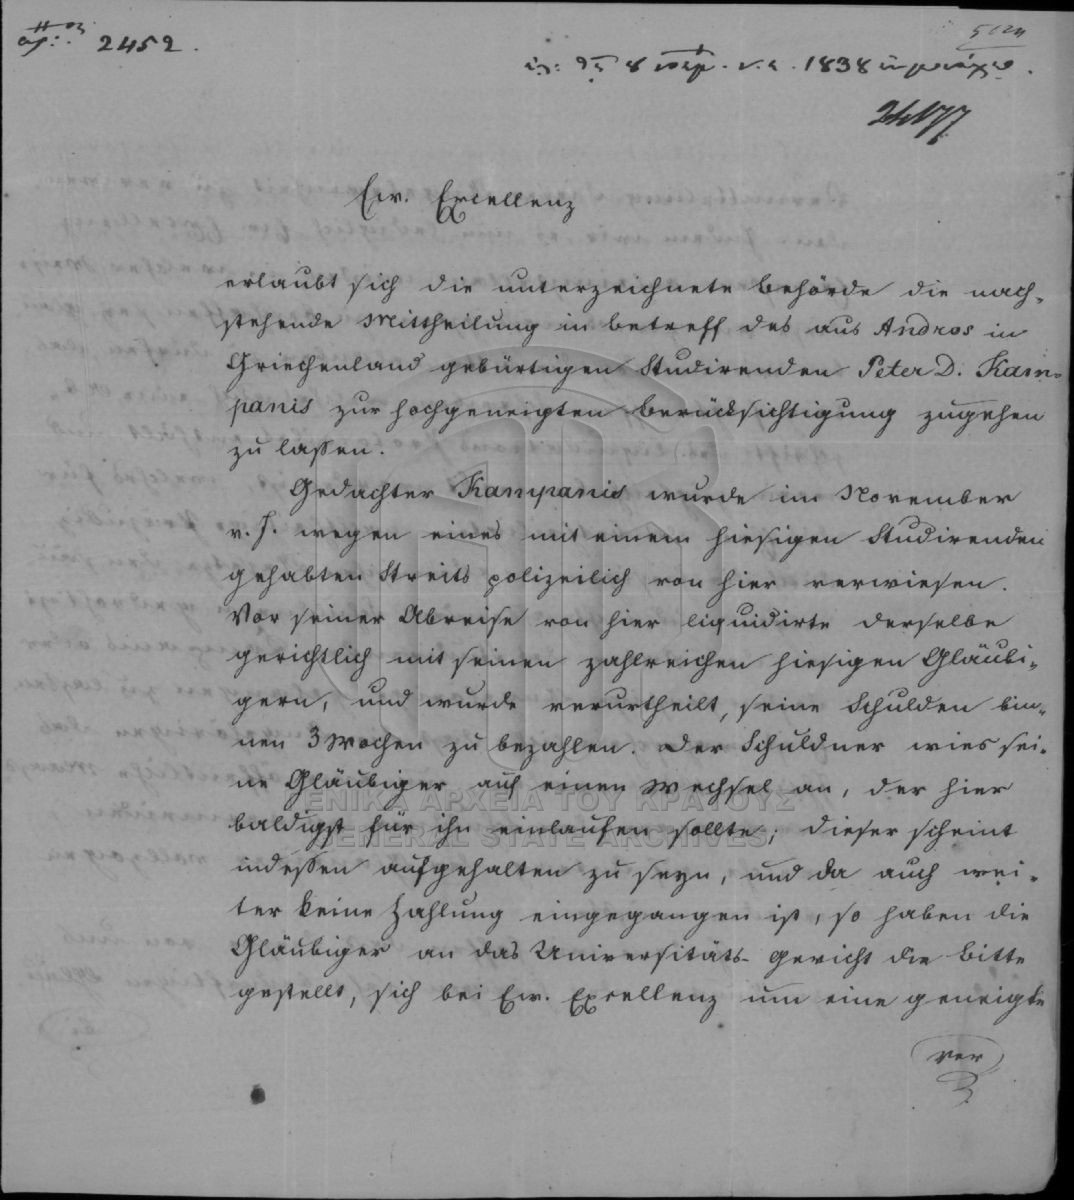 αρ: 2452.
1838
Ew. Excellenz
erlaubt sich die unterzeichnete Behörde die nach-
stehende Mittheilung in betreff des aus Andros in
Griechenland gebürtigen Studirenden Peter D. Kam-
panis zur hochgeneigten Berücksichtigung zugehen
zu lassen.
Gedachter Kampanis wurde im November
v. J. wegen eines mit einem hiesigen Studirenden
gehabten Streits polizeilich von hier verwiesen.
Vor seiner Abreise von hier liquidirte derselbe
gerichtlich mit seinen zahlreichen hiesigen Gläubi-
gern, und wurde verurtheilt, seine Schulden bin-
nen 3 Wochen zu bezahlen. Der Schuldner wies sei-
ne Gläubiger auf einen Wechsel an, der hier
ΓΕΝΙΚΑ ΑΡΧΕΙΑ ΤΟΥ ΚΡΑΤΟΥΣ
baldigst für ihn einlaufen sollte; dieser scheint
GENERAL STATE ARCHIVES
indessen aufgehalten zu seyn, und da auch wei-
ter keine Zahlung eingegangen ist, so haben die
Gläubiger an das Universitäts-Gericht die Bitte
gestellt, sich bei Ew. Excellenz um eine geneigte
ver